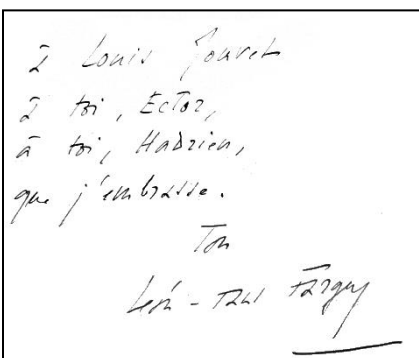 à Louis Jouvet
à toi, Ector,
à toi, Hadrien,
que j'embrasse.
Ton
Léon-Paul Fargue